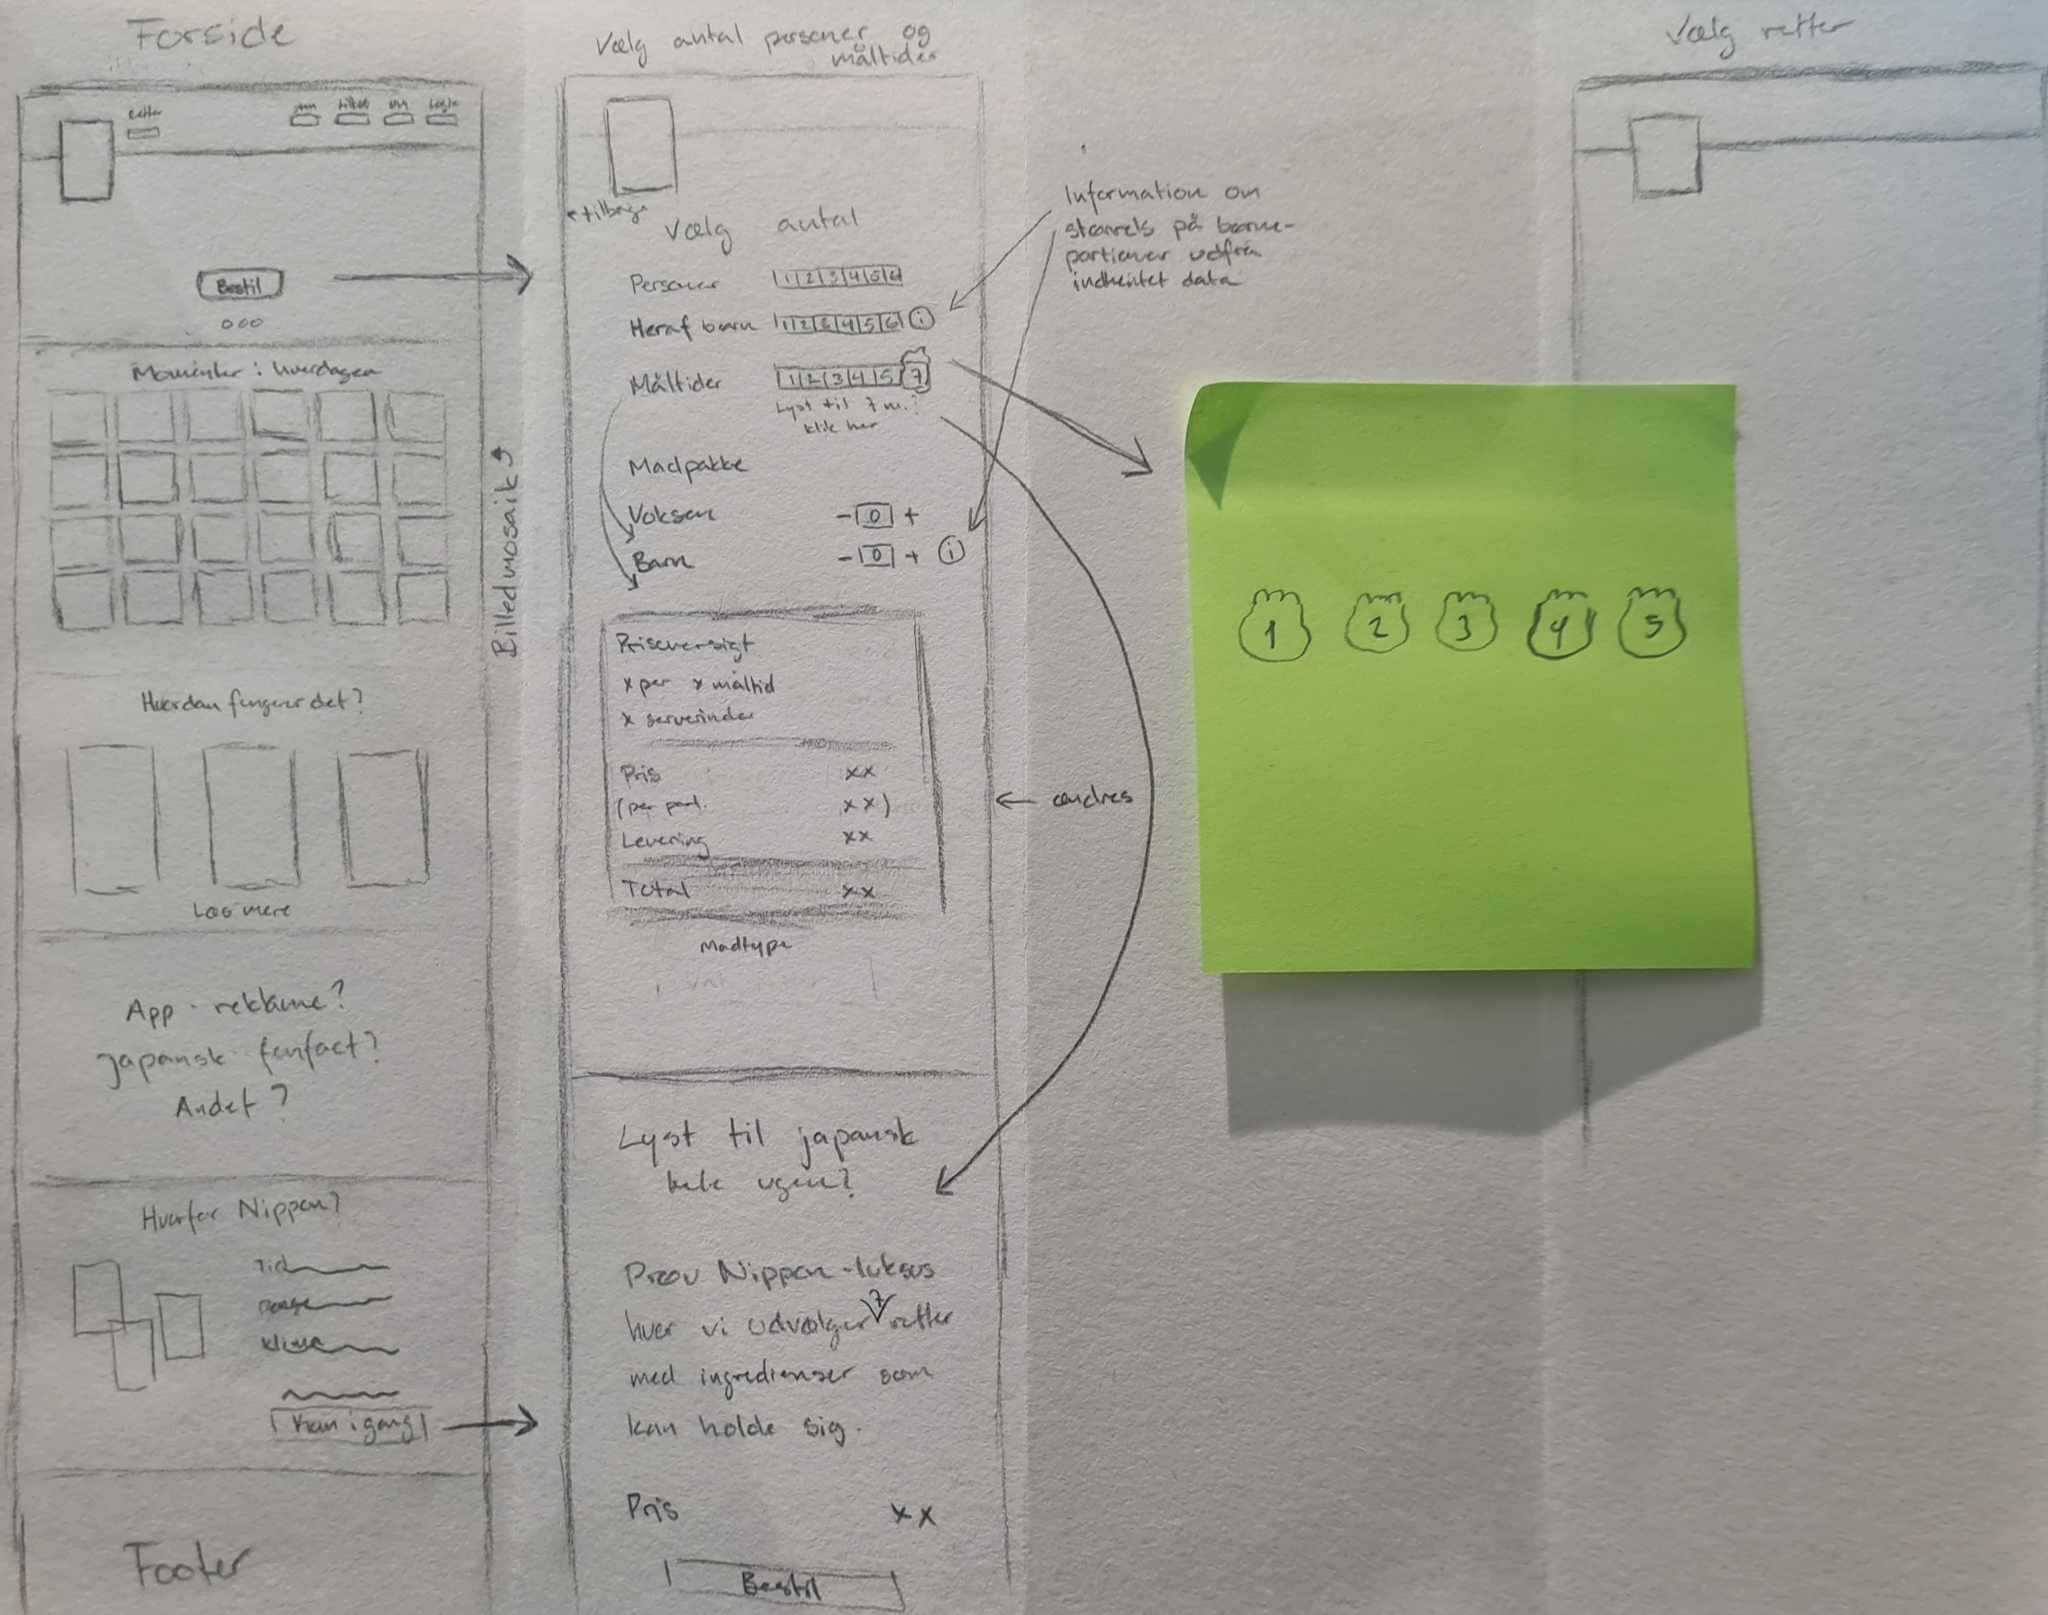 Forside
Retter
Login
Bestil
Momenter i hverdagen
Billedmosaik
Hvordan fungerer det?
Læs mere
App-reklame?
japansk funfact?
Andet?
Hvorfor Nippon?
Tid
Penge
Klima
Kom i gang
Footer
Vælg antal personer og
måltider
tilbage
Vælg antal
Personer 1 2 3 4 5 6
Heraf børn 1 2 3 4 5 6 i
Måltider 1 2 3 4 5 7
Lyst til 7 m.?
klik her
Madpakke
Voksen - 0 +
Børn - 0 + i
Prisoversigt
x per x måltid
x serverinder
Pris xx
(per port. xx)
Levering xx
Total xx
Madtype
Lyst til japansk
hele ugen?
Prøv Nippon-luksus
hvor vi udvælger 7 retter
med ingredienser som
kan holde sig.
Pris xx
Bestil
Information om
størrels på børne-
portioner udfra
indhentet data
ændres
1 2 3 4 5
Vælg retter